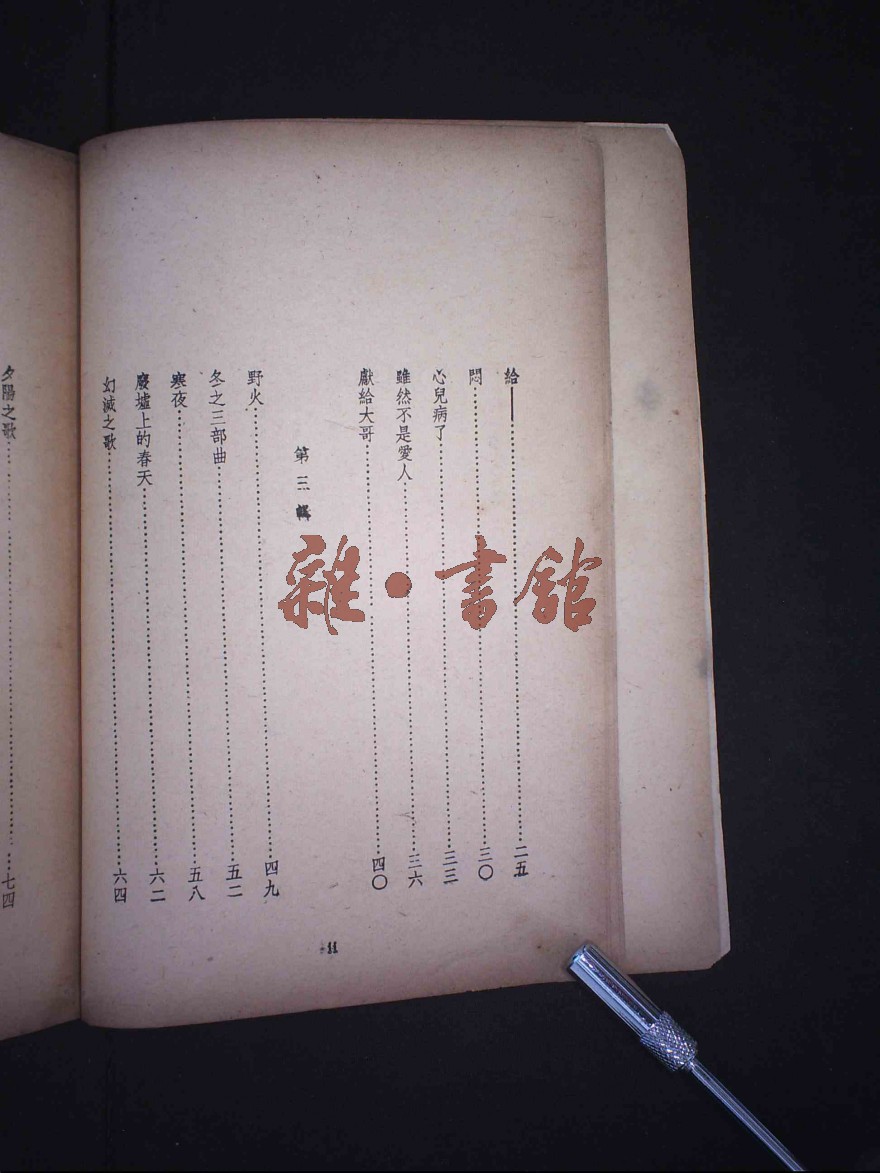 給——……二五
悶……三〇
心兒病了……三三
雖然不是愛人……三六
獻給大哥……四〇
第三輯
野火……四九
冬之三部曲……五二
寒夜……五八
廢墟上的春天……六二
幻滅之歌……六四
夕陽之歌……七四
雜•書館